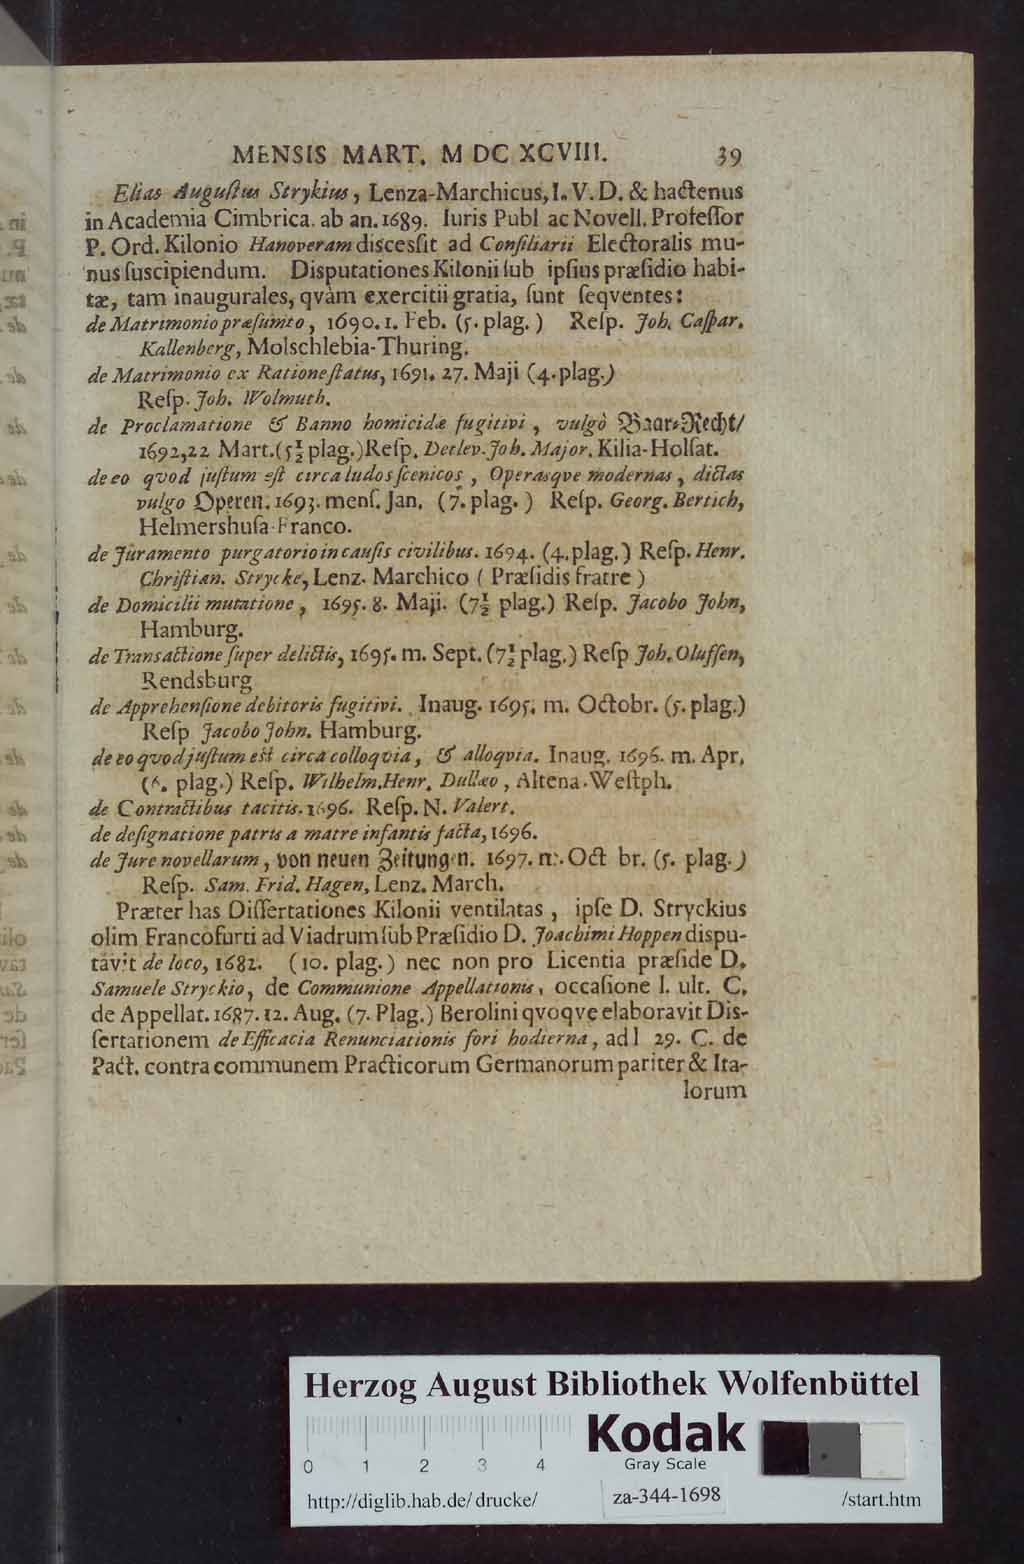 MENSIS MART. M DC XCVIII. 39
Elias Auguſtus Strykius, Lenza-Marchicus, I. V. D. & hactenus
in Academia Cimbrica. ab an. 1689. Iuris Publ ac Novell. Profeſſor
P. Ord. Kilonio Hanoveram discesſit ad Conſiliarii Electoralis mu-
nus ſuscipiendum. Disputationes Kilonii ſub ipſius præſidio habi-
tæ, tam inaugurales, qvàm exercitii gratia, ſunt ſeqventes:
de Matrimonio præſumto, 1690. 1. Feb. (5. plag.) Reſp. Joh. Caſpar.
Kallenberg, Molschlebia-Thuring.
de Matrimonio ex Ratione ſtatus, 1691. 27. Maji (4. plag.)
Reſp. Joh. Wolmuth.
de Proclamatione & Banno homicidæ fugitivi, vulgò Baar-Recht/
1692, 22 Mart. (5½ plag.) Reſp. Detlev. Joh. Major. Kilia-Holſat.
de eo qvod juſtum eſt circa ludos ſcenicos, Operasqve modernas, dictas
vulgo Operen. 1693. menſ. Jan. (7. plag.) Reſp. Georg. Bertich,
Helmershuſa-Franco.
de Juramento purgatorio in cauſis civilibus. 1694. (4. plag.) Reſp. Henr.
Chriſtian. Strycke, Lenz. Marchico (Præſidis fratre)
de Domicilii mutatione, 1695. 8. Maji. (7½ plag.) Reſp. Jacobo John,
Hamburg.
de Transactione ſuper delictis, 1695. m. Sept. (7½ plag.) Reſp Joh. Oluffen,
Rendsburg
de Apprehenſione debitoris fugitivi. Inaug. 1695. m. Octobr. (5. plag.)
Reſp Jacobo John. Hamburg.
de eo qvod juſtum eſt circa colloqvia, & alloqvia. Inaug. 1696. m. Apr,
(6. plag.) Reſp. Wilhelm. Henr. Dullæo, Altena-Weſtph.
de Contractibus tacitis. 1696. Reſp. N. Valert.
de deſignatione patris a matre infantis facta, 1696.
de Jure novellarum, von neuen Zeitungen. 1697. m. Oct br. (5. plag.)
Reſp. Sam. Frid. Hagen, Lenz. March.
Præter has Diſſertationes Kilonii ventilatas, ipſe D. Stryckius
olim Francofurti ad Viadrum ſub Præſidio D. Joachimi Hoppen dispu-
tavit de loco, 1682. (10. plag.) nec non pro Licentia præſide D.
Samuele Stryckio, de Communione Appellationis, occaſione l. ult. C.
de Appellat. 1687. 12. Aug. (7. Plag.) Berolini qvoqve elaboravit Dis-
ſertationem de Efficacia Renunciationis fori hodierna, ad l 29. C. de
Pact. contra communem Practicorum Germanorum pariter & Ita-
lorum
Herzog August Bibliothek Wolfenbüttel
Kodak
0 1 2 3 4 Gray Scale
http://diglib.hab.de/drucke/ za-344-1698 /start.htm